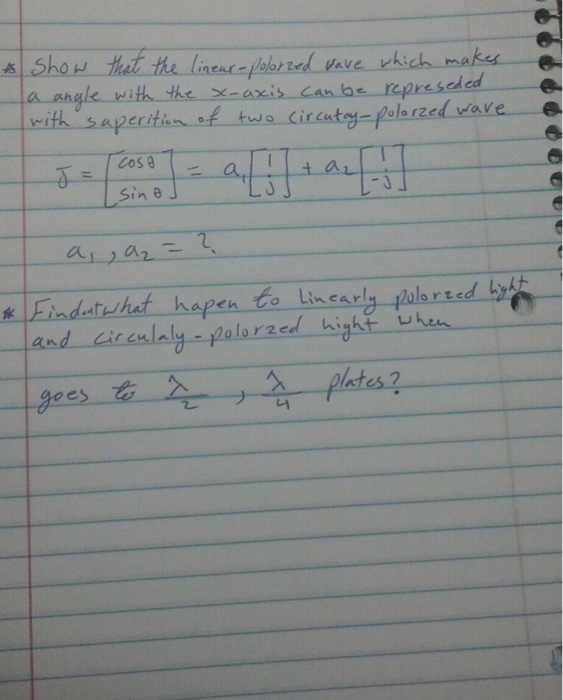 * Show that the linear-polorzed wave which makes
a angle with the x-axis can be represeded
with saperition of two circutay-polorzed wave
J = [cosθ sinθ] = a₁[1 j] + a₂[1 -j]
a₁, a₂ = ?
* Find out what hapen to Linearly polorzed hight
and circulaly-polorzed hight when
goes to λ/2 , λ/4 plates?